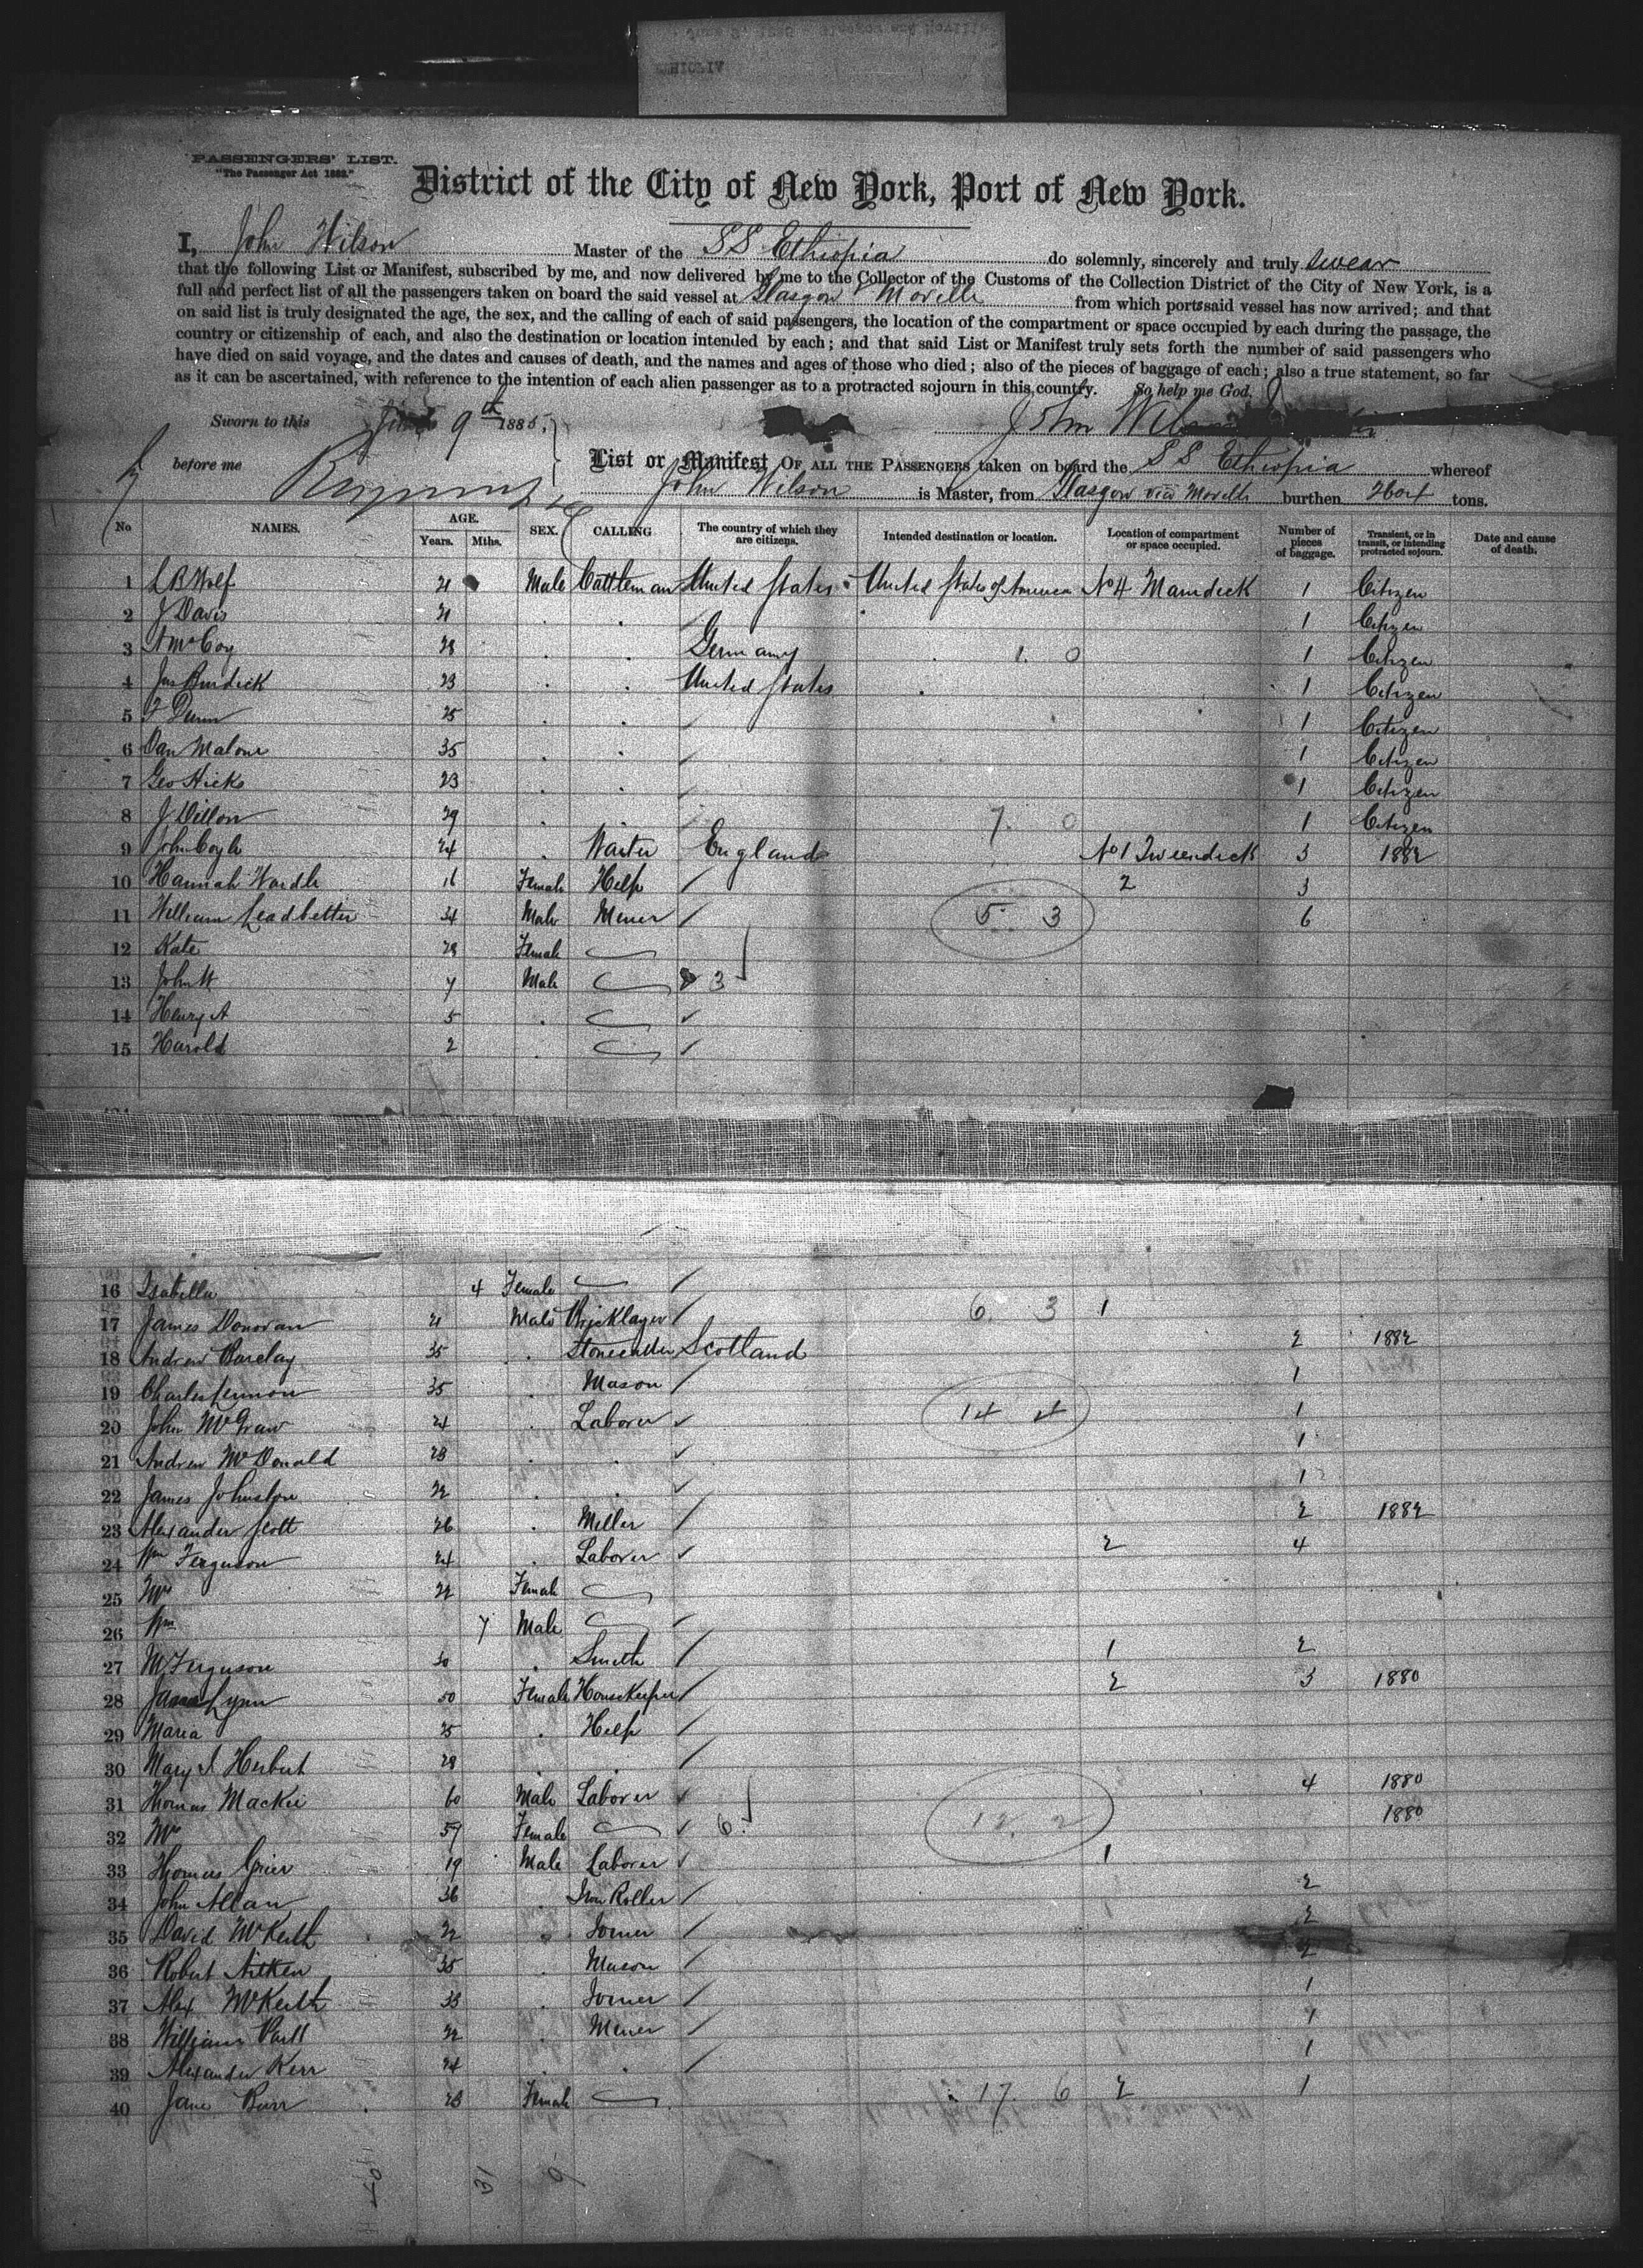 PASSENGERS' LIST.
"The Passenger Act 1882."
District of the City of New York, Port of New York.
I, John Wilson Master of the SS Ethiopia do solemnly, sincerely and truly swear
that the following List or Manifest, subscribed by me, and now delivered by me to the Collector of the Customs of the Collection District of the City of New York, is a
full and perfect list of all the passengers taken on board the said vessel at Glasgow & Moville from which ports said vessel has now arrived; and that
on said list is truly designated the age, the sex, and the calling of each of said passengers, the location of the compartment or space occupied by each during the passage, the
country or citizenship of each, and also the destination or location intended by each; and that said List or Manifest truly sets forth the number of said passengers who
have died on said voyage, and the dates and causes of death, and the names and ages of those who died; also of the pieces of baggage of each; also a true statement, so far
as it can be ascertained, with reference to the intention of each alien passenger as to a protracted sojourn in this country. So help me God.
Sworn to this 9th 1885, John
before me List or Manifest OF ALL THE PASSENGERS taken on board the SS Ethiopia whereof
John Wilson is Master, from Glasgow via Moville burthen tons.
No NAMES. AGE. Years. Mths. SEX. CALLING The country of which they are citizens. Intended destination or location. Location of compartment or space occupied. Number of pieces of baggage. Transient, or in transit, or intending protracted sojourn. Date and cause of death.
1 L B Wolf 21 Male Cattleman United States United States of America No 4 Maindeck 1 Citizen
2 J Davis 21 1 Citizen
3 A McCoy 28 Germany 1. 0 1 Citizen
4 Jas Burdick 23 United States 1 Citizen
5 F Dunn 25 1 Citizen
6 Dan Malone 35 1 Citizen
7 Geo Hicks 23 1 Citizen
8 J Dillon 29 7. 0 1 Citizen
9 John Coyle 24 Waiter England No 1 Tweendeck 3 1882
10 Hannah Wardle 16 Female Help 2 3
11 William Leadbetter 34 Male Miner 5 3 6
12 Kate 28 Female
13 John W 7 Male 3
14 Henry A 5
15 Harold 2
16 Isabella 4 Female
17 James Donovan 21 Male Bricklayer 6. 3 1
18 Andrew Barclay 35 Stonecutter Scotland 2 1882
19 Charles Lennon 35 Mason 1
20 John McGraw 24 Laborer 14 4 1
21 Andrew McDonald 23 1
22 James Johnston 22 1
23 Alexander Scott 26 Miller 2 1882
24 Wm Ferguson 24 Laborer 2 4
25 Mrs 22 Female
26 Wm 7 Male
27 M Ferguson 30 Smith 1 2
28 Lynn 50 Female Housekeeper 2 3 1880
29 Maria 25 Help
30 Mary I Herbert 28
31 Thomas Mackie 60 Male Laborer 4 1880
32 Mrs 59 Female 6. 12. 2 1880
33 Thomas Grier 19 Male Laborer 1
34 John Allan 36 Iron Roller 2
35 David McKeith 22 Joiner 2
36 Robert Aitken 35 Mason 2
37 Alex McKeith 33 Joiner 1
38 William 22 Miner 1
39 Alexander Kerr 24 1
40 Jane Burr 23 Female 17. 6 2 1